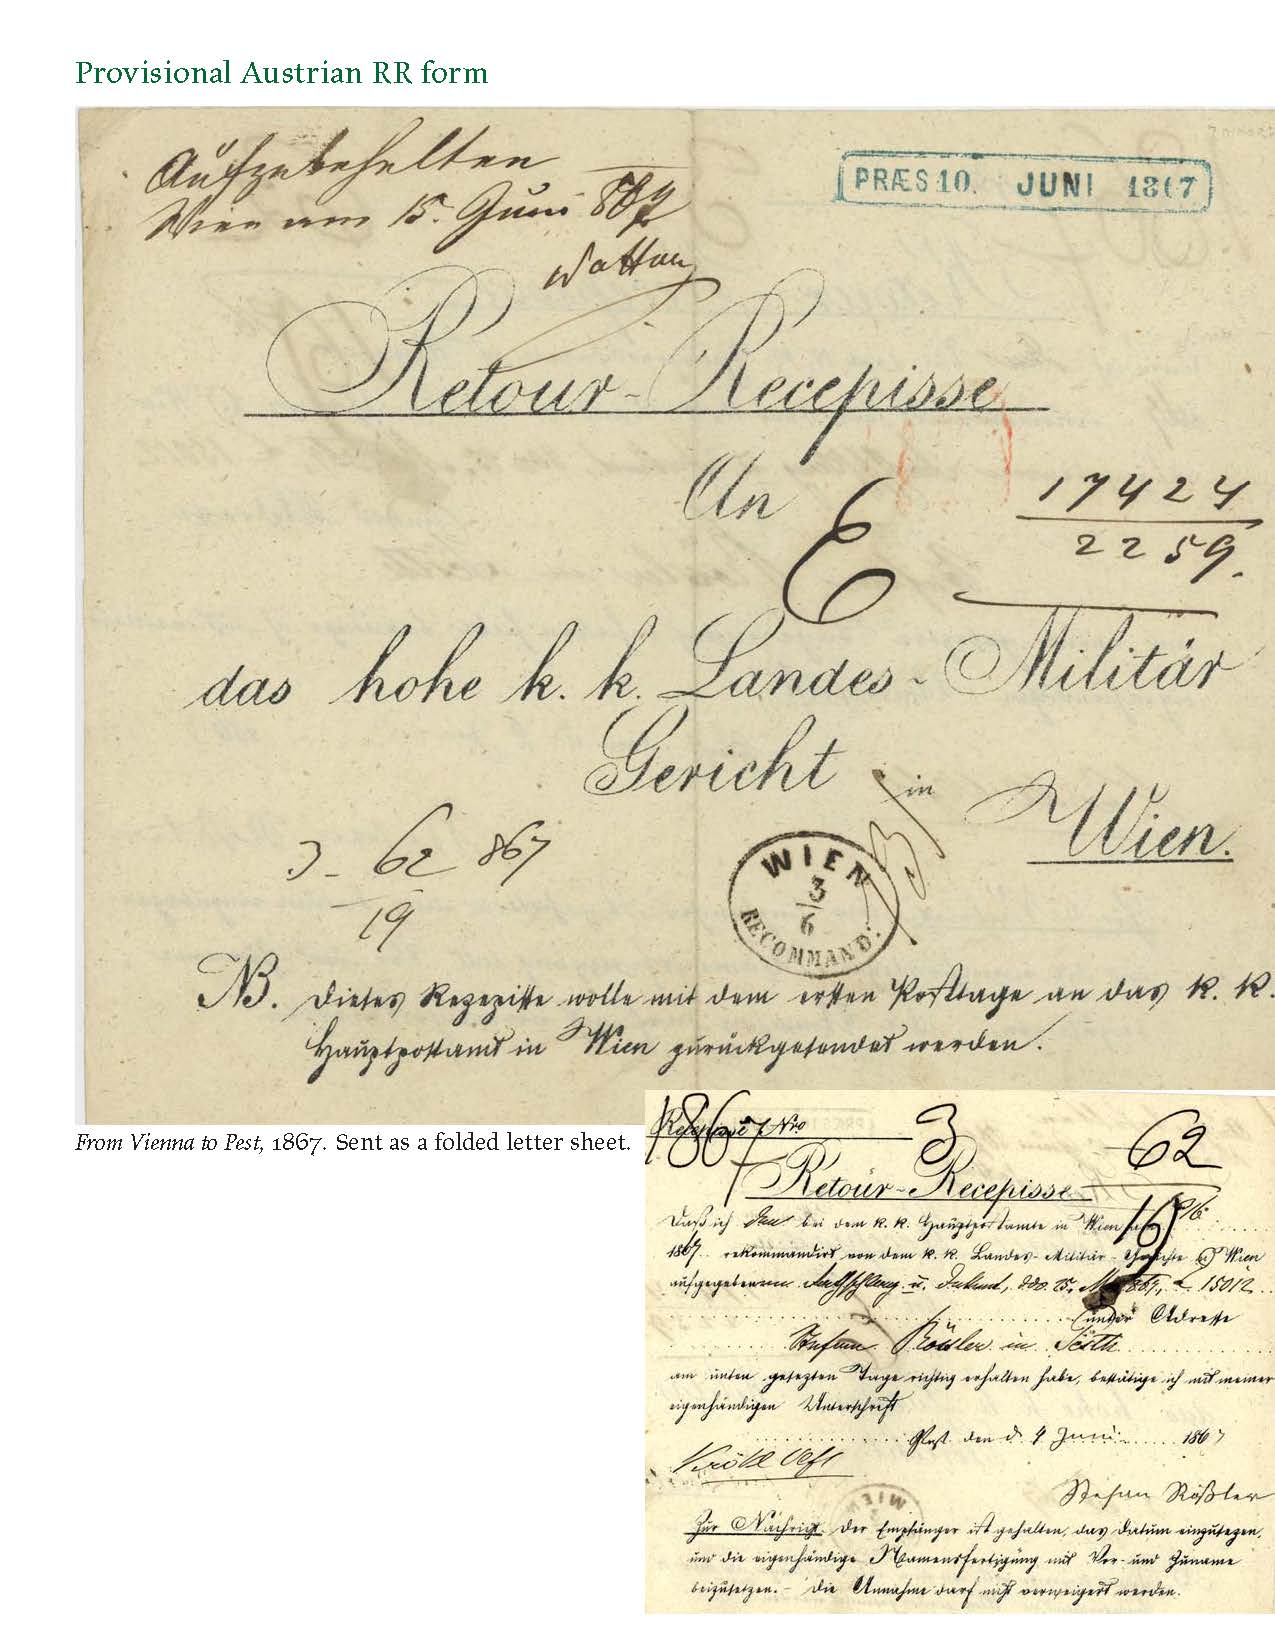 Provisional Austrian RR form
Aufzubehalten
Wien am 15. Juni 867
PRÆS 10. JUNI 1867
Retour-Recepisse
An
E
17424
2259.
das hohe k. k. Landes-Militär
Gericht in
Wien.
3 - 62 867
19
WIEN
3
6
RECOMMAND.
NB. Dieses Rezepisse wolle mit dem ersten Posttage an das k. k.
Hauptpostamt in Wien zurückgesendet werden.
From Vienna to Pest, 1867. Sent as a folded letter sheet.
1867 Nro 3 62
Retour-Recepisse
19
Daß ich den bei dem k. k. Hauptpostamte in Wien
1867 rekommandirt von dem k. k. Landes-Militär-Gerichte in Wien
aufgegebenen 15012
unter Adresse
Stefan Rössler in Pesth
am unten gesezten Tage richtig erhalten habe, bestätige ich mit meiner
eigenhändigen Unterschrift
Pest den 4 Juni 1867
Stefan Rößler
WIEN
Zur Nachricht. Der Empfänger ist gehalten, das Datum einzusezen,
und die eigenhändige Namensfertigung mit Vor- und Zuname
beizusetzen. - Die Annahme darf nicht verweigert werden.